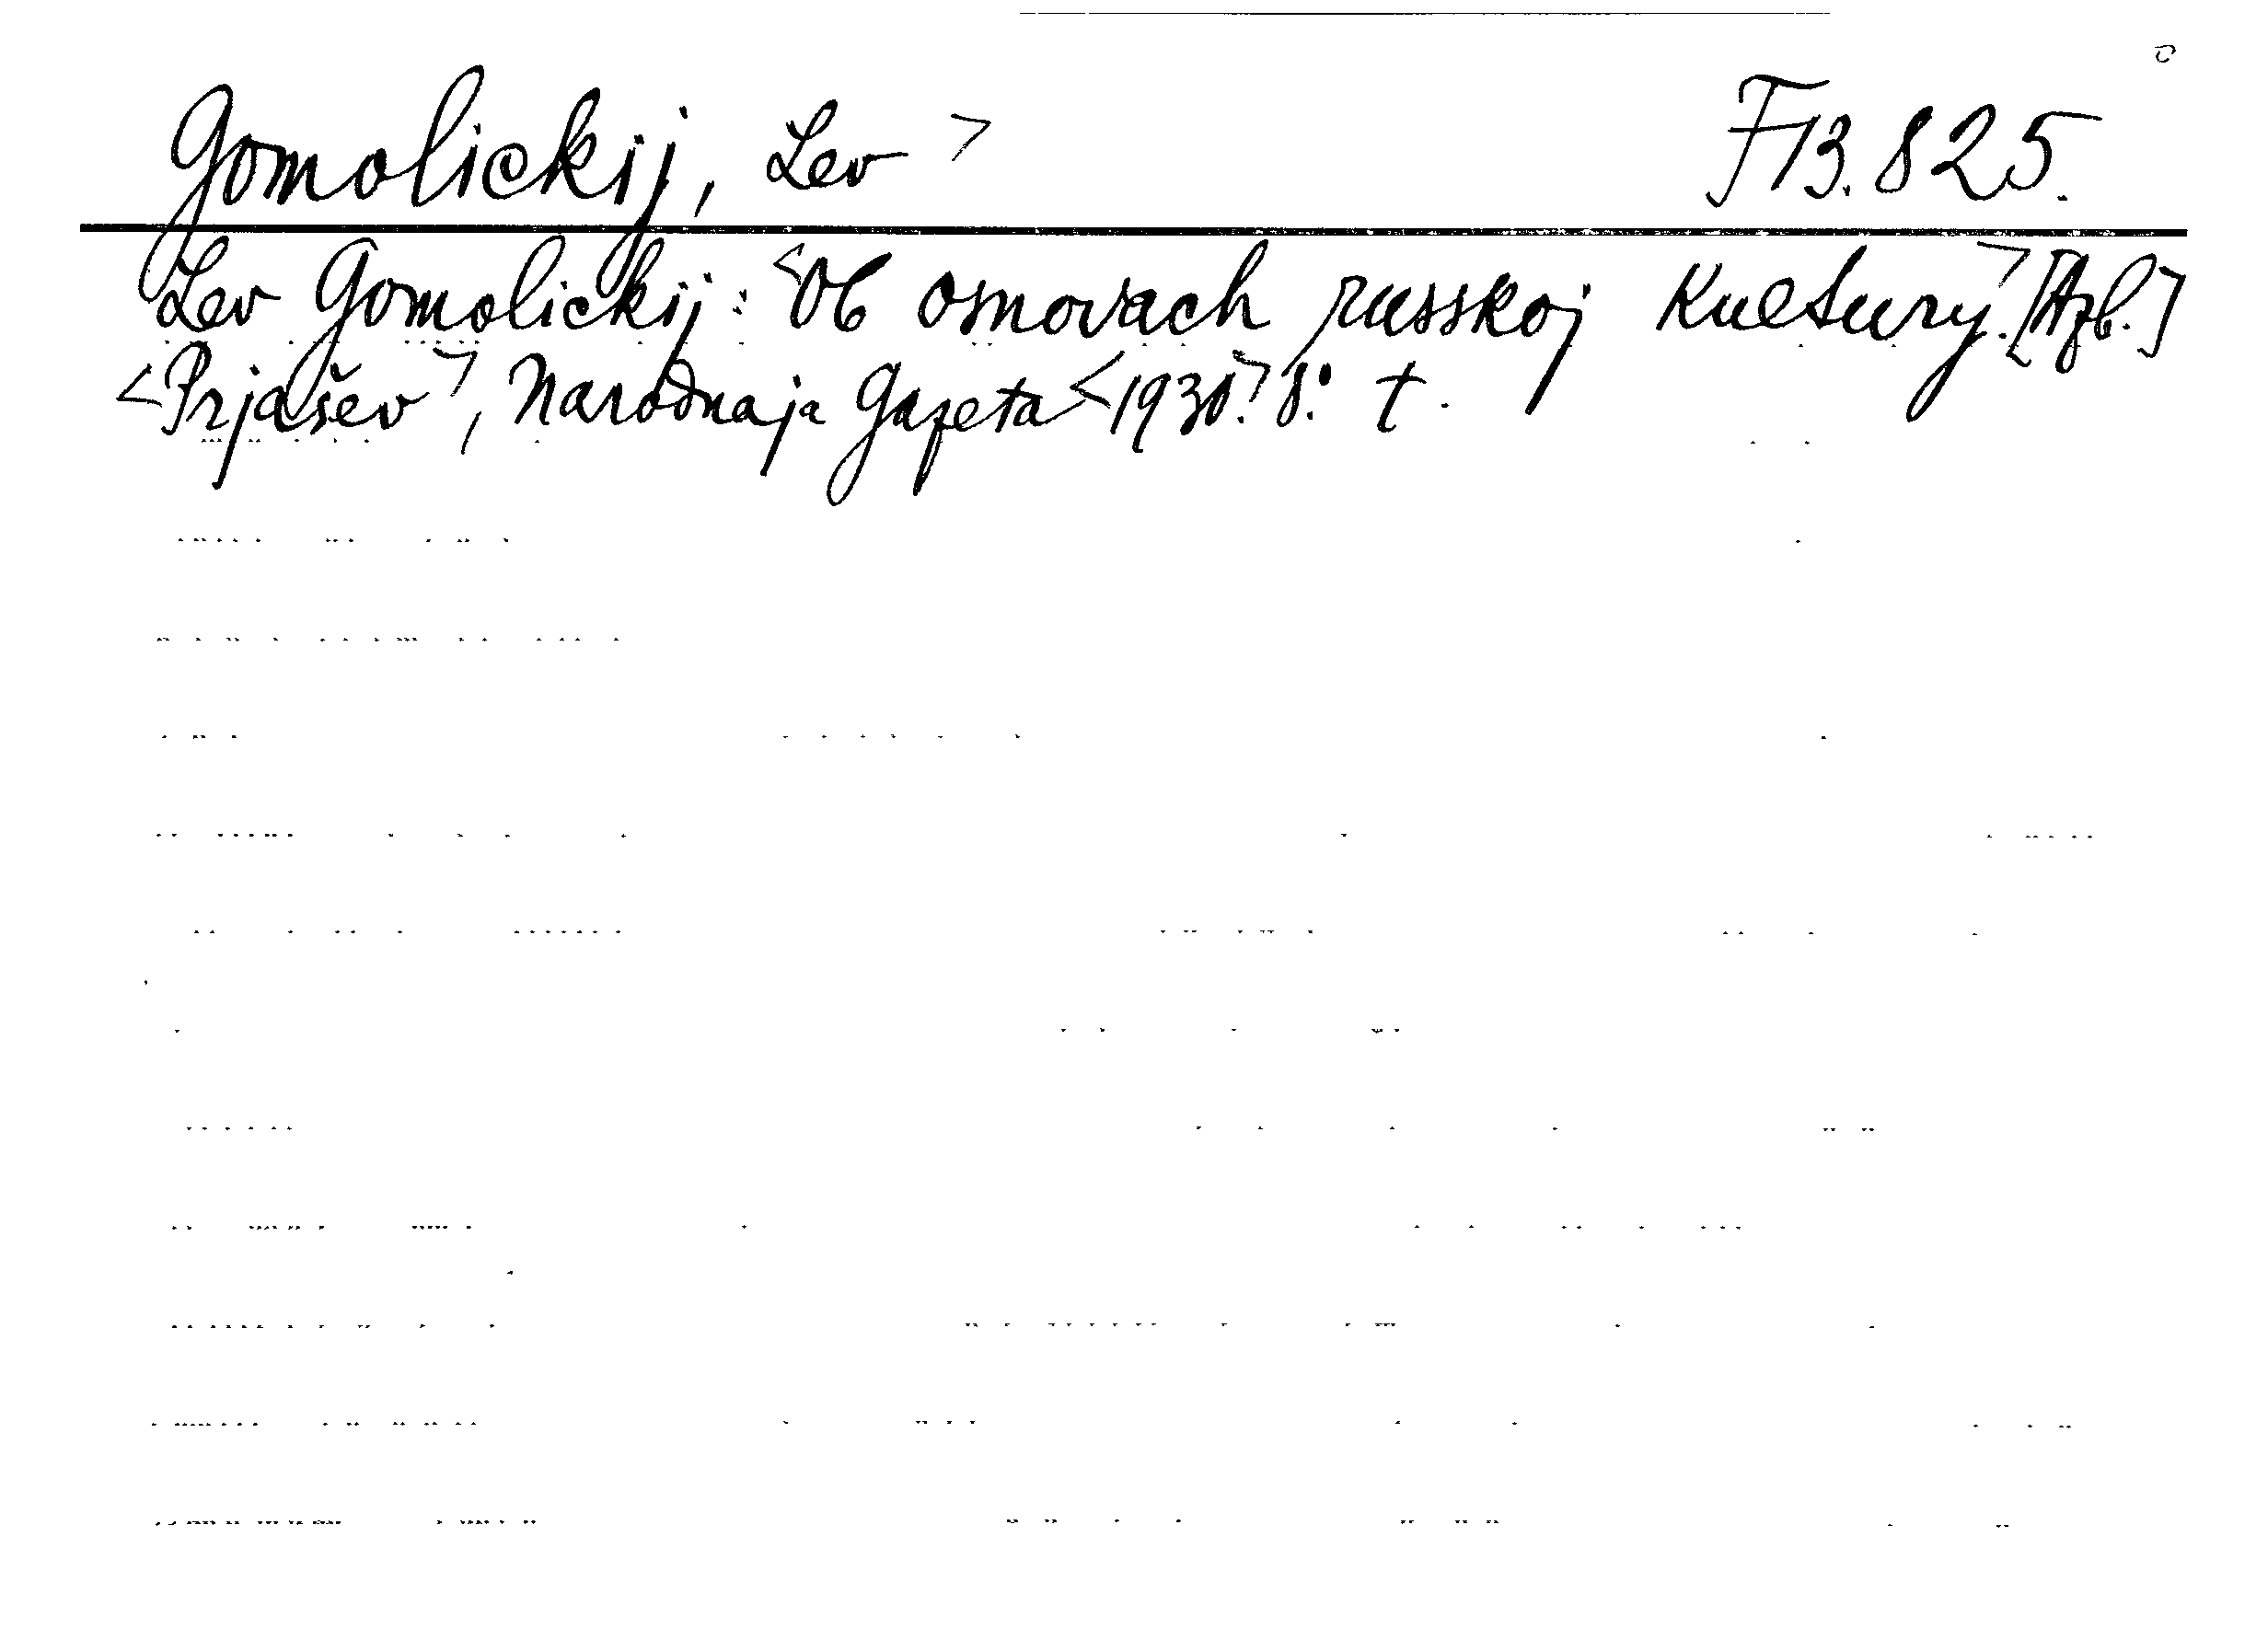 Gomolickij, Lev > F 13.825.
Lev Gomolickij: <Ob osnovach russkoj kulʹtury>. [Azb.]
<Prjašev>, Narodnaja Gazeta <1930.> 8.° t.